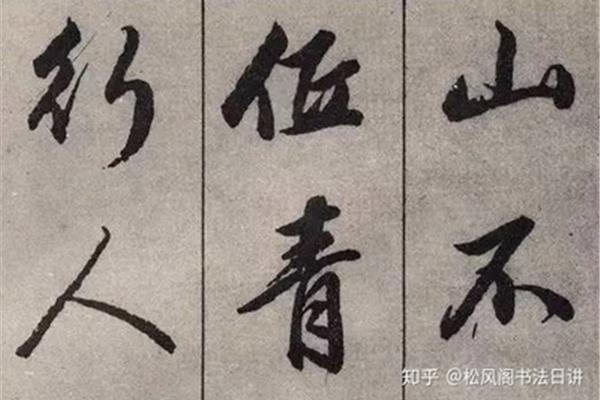 山不
青
行人
知乎 @松风阁书法日讲